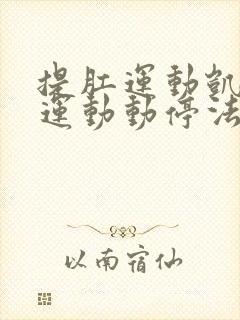 提肛運動凱
運動動停法
以南宿仙